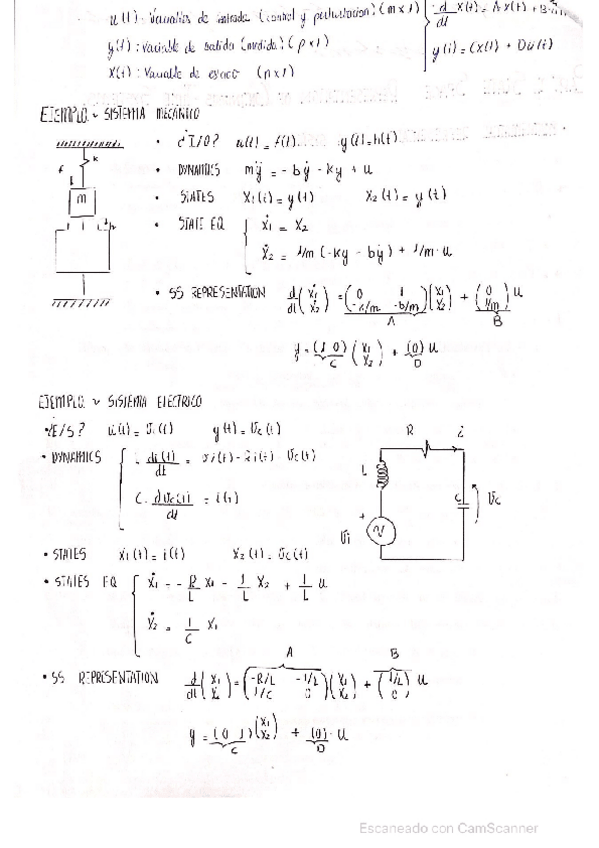 u(t): Variables de entrada (control y perturbacion) (m x 1)
d/dt x(t) = A·x(t) + B·u(t)
y(t): variable de salida (medida) (p x 1)
y(t) = Cx(t) + Du(t)
X(t): Variable de estado (n x 1)
EJEMPLO ~ SISTEMA MECANICO
• ¿I/O? u(t) = f(t). y(t) = h(t)
k
f
m
• DYNAMICS mÿ = -bẏ - ky + u
• STATES X1(t) = y(t) X2(t) = y(t)
• STATE EQ { ẋ1 = x2
ẋ2 = 1/m(-ky - bẏ) + 1/m·u
• SS REPRESENTATION d/dt (x1 x2) = (0 1 -k/m -b/m)(x1 x2) + (0 1/m) u
A B
y = (1 0)(x1 x2) + (0) u
C D
EJEMPLO ~ SISTEMA ELECTRICO
• ¿E/S? u(t) = Vi(t) y(t) = Vc(t)
R i
• DYNAMICS { L di(t)/dt = Vi(t) - Ri(t) - Vc(t)
L
C Vc
C. dVc(t)/dt = i(t)
+
Vi
• STATES x1(t) = i(t) X2(t) = Vc(t)
• STATES EQ { ẋ1 = -R/L x1 - 1/L x2 + 1/L u
ẋ2 = 1/C x1
A B
• SS REPRESENTATION d/dt (x1 x2) = (-R/L -1/L 1/C 0)(x1 x2) + (1/L 0) u
y = (0 1)(x1 x2) + (0)·u
C D
Escaneado con CamScanner